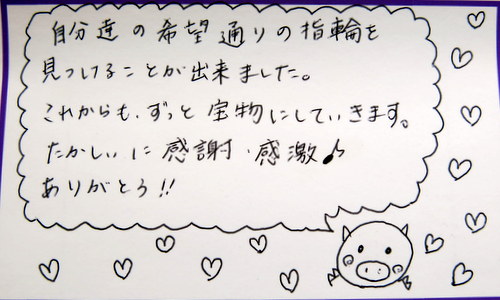 自分達の希望通りの指輪を
見つけることが出来ました。
これからも、ずっと宝物にしていきます。
たかしぃに感謝・感激♪
ありがとう!!